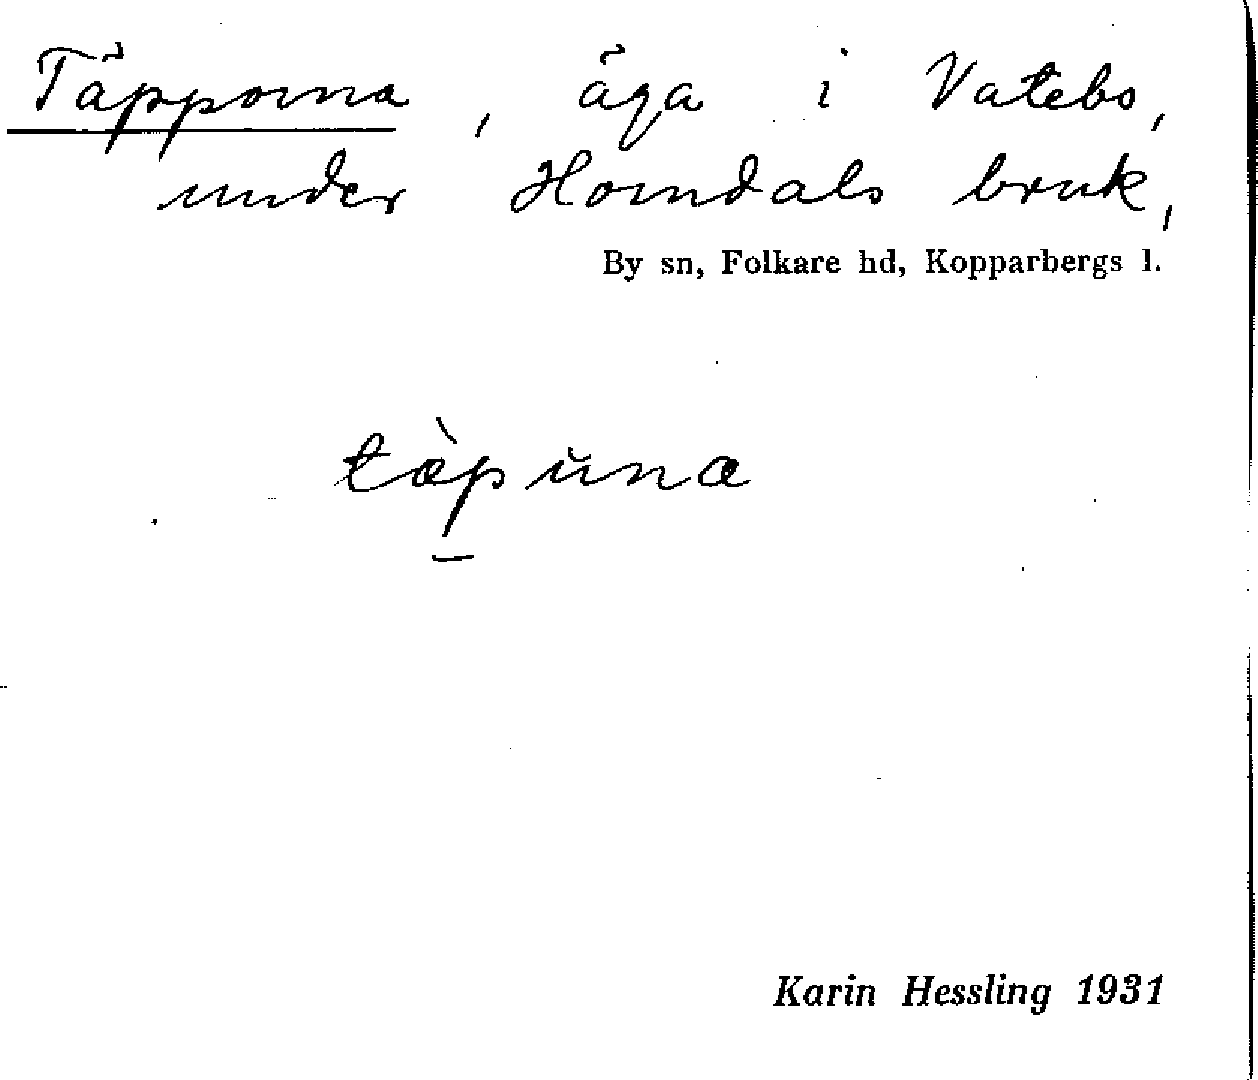 Täpporna, äga i Vatebo,
under Horndals bruk,
By sn, Folkare hd, Kopparbergs l.
tæ̀pŭna
Karin Hessling 1931